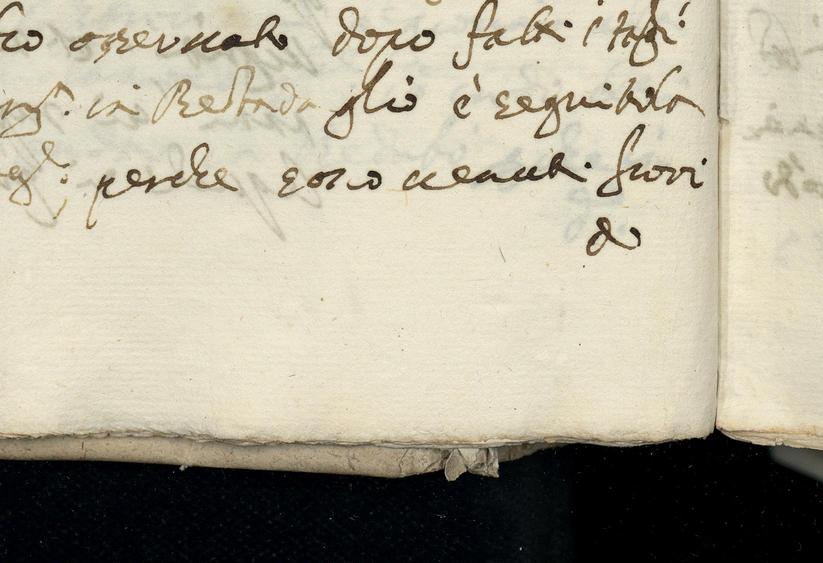 osservato dopo fatti i tagli
in Bestada glio è seguitola
perche sono venuti fuori
di